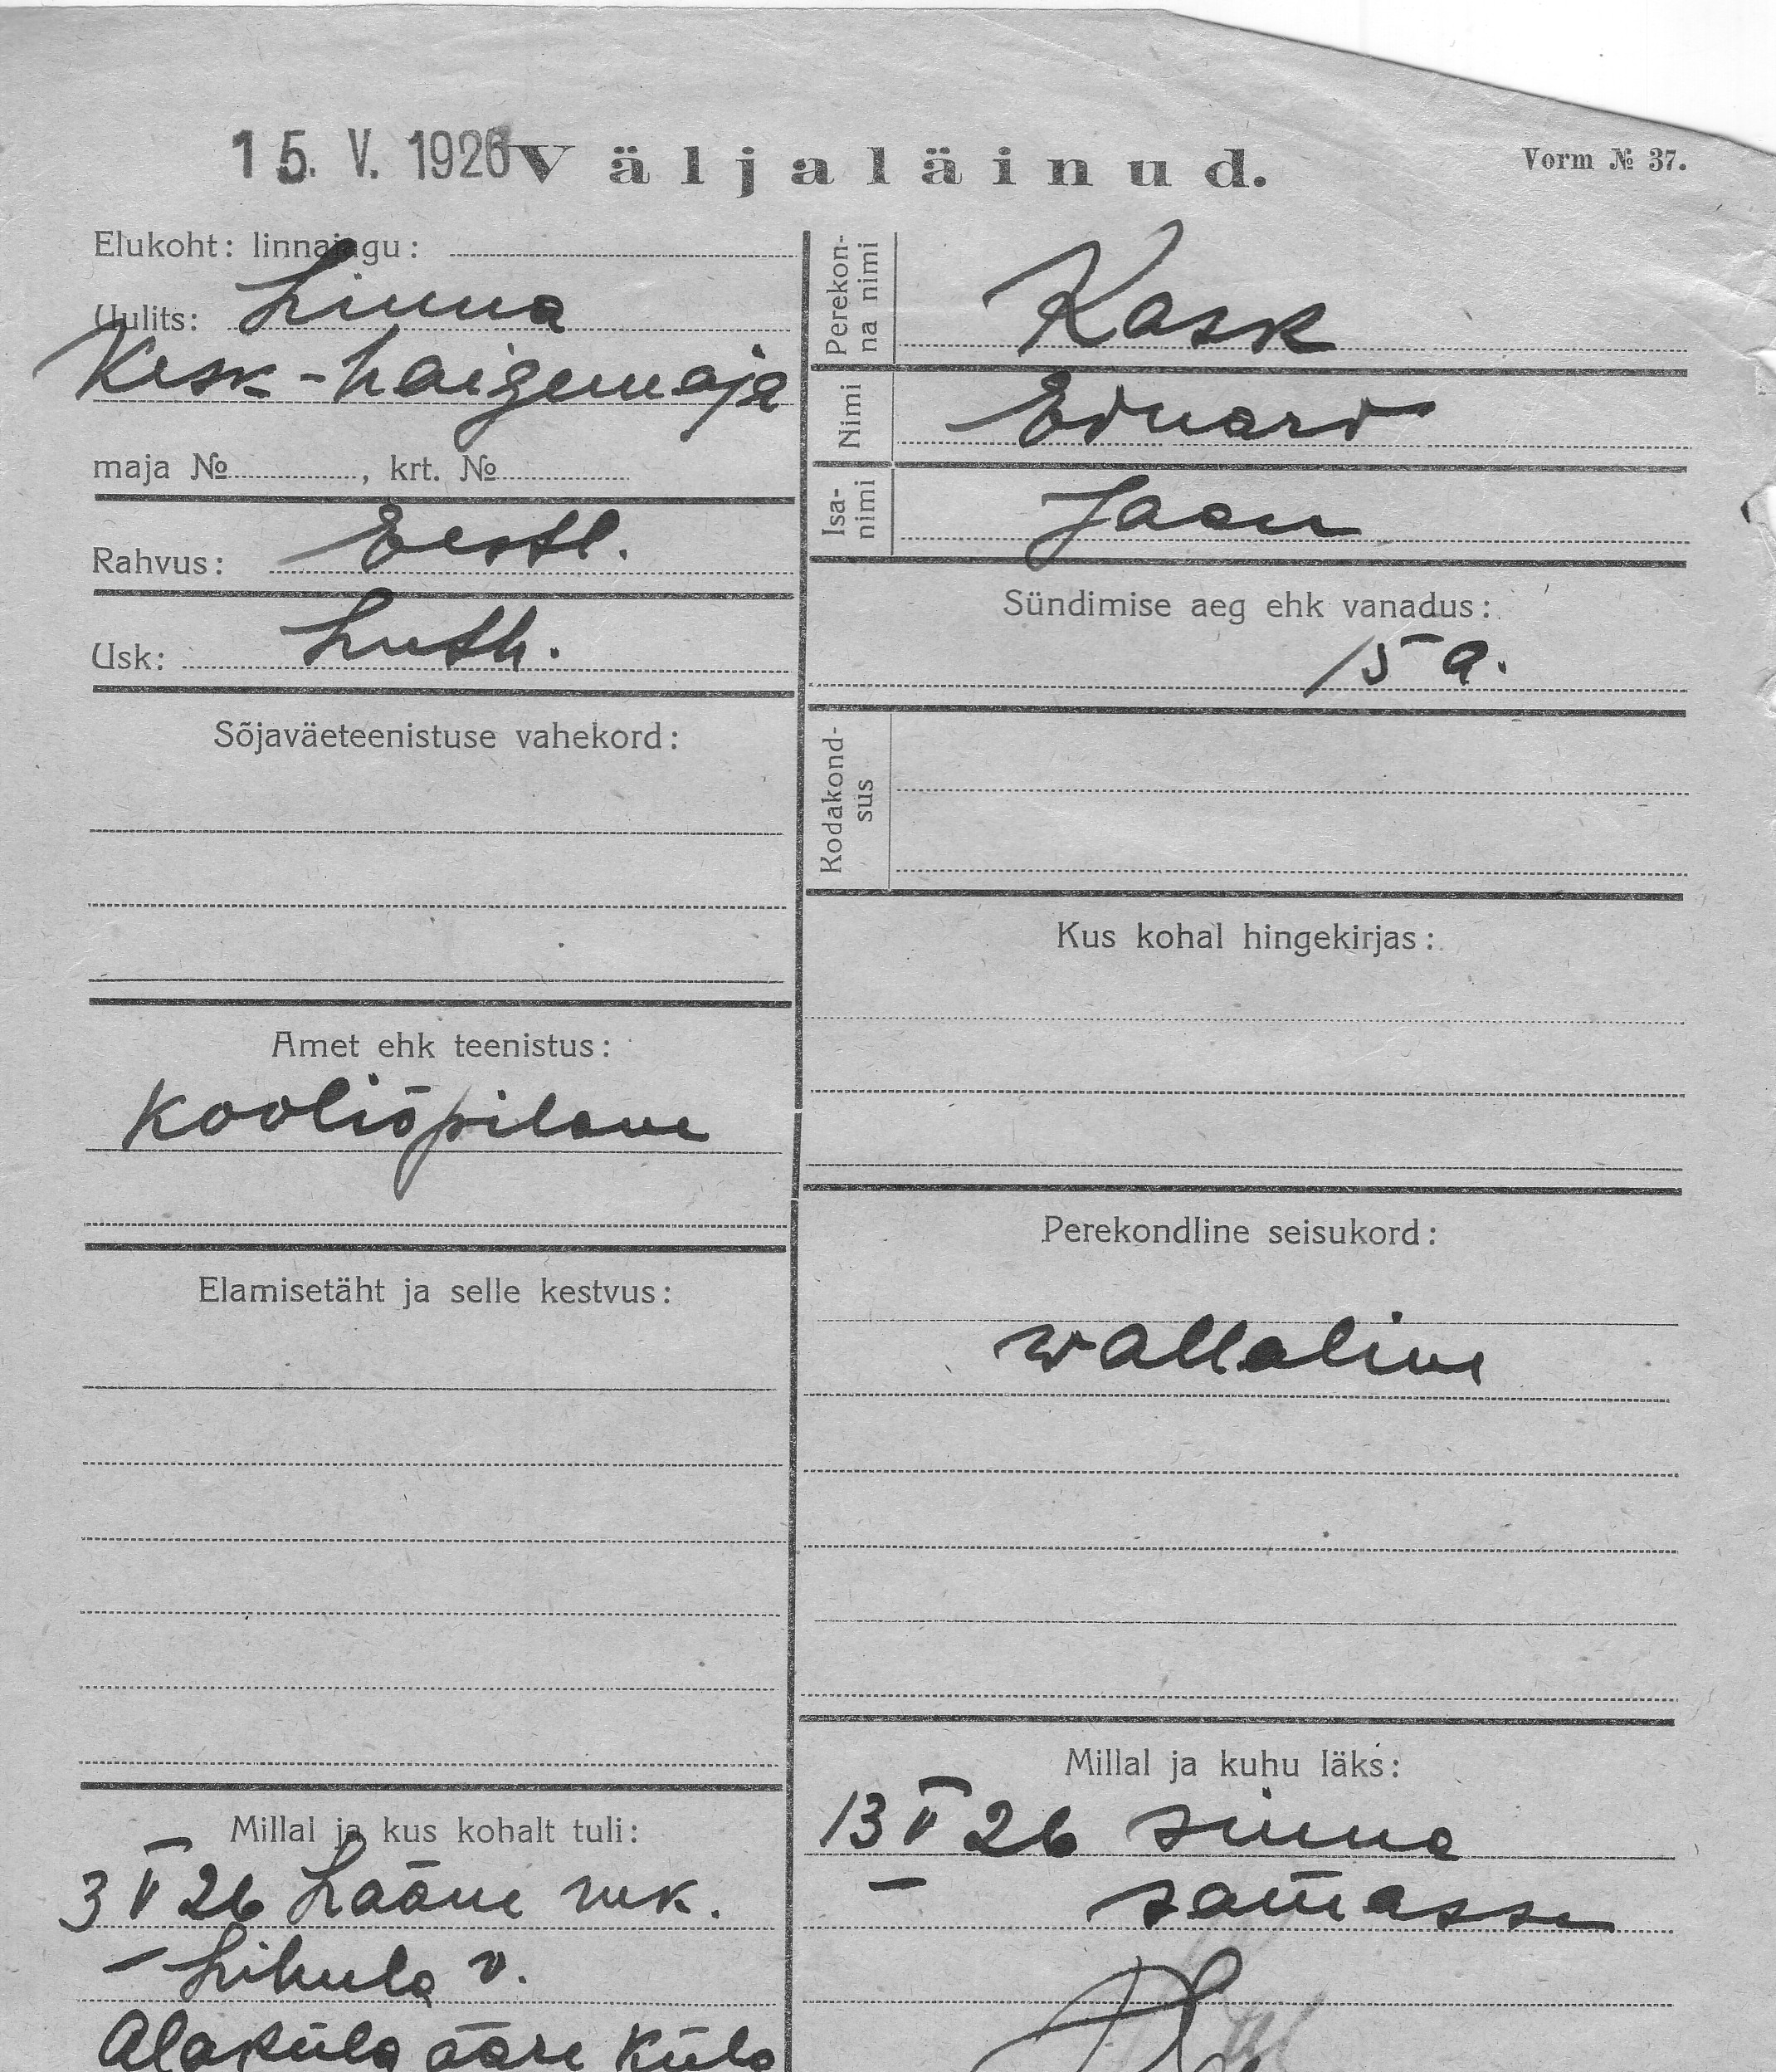 15. V. 1926 Väljaläinud. Vorm № 37.
Elukoht: linnajagu:
Uulits: Linna
Kesk-haigemaja
maja № , krt. №
Rahvus: Eestl.
Usk: Luth.
Sõjaväeteenistuse vahekord:
Amet ehk teenistus:
Kooliõpilane
Elamisetäht ja selle kestvus:
Millal ja kus kohalt tuli:
3 V 26 Lääne mk.
Lihula v.
Alaküla ääre küla
Perekon-
na nimi
Kask
Nimi
Eduard
Isa-
nimi
Jaan
Sündimise aeg ehk vanadus:
15 a.
Kodakond-
sus
Kus kohal hingekirjas:
Perekondline seisukord:
wallaline
Millal ja kuhu läks:
13 V 26 sinna
samasse